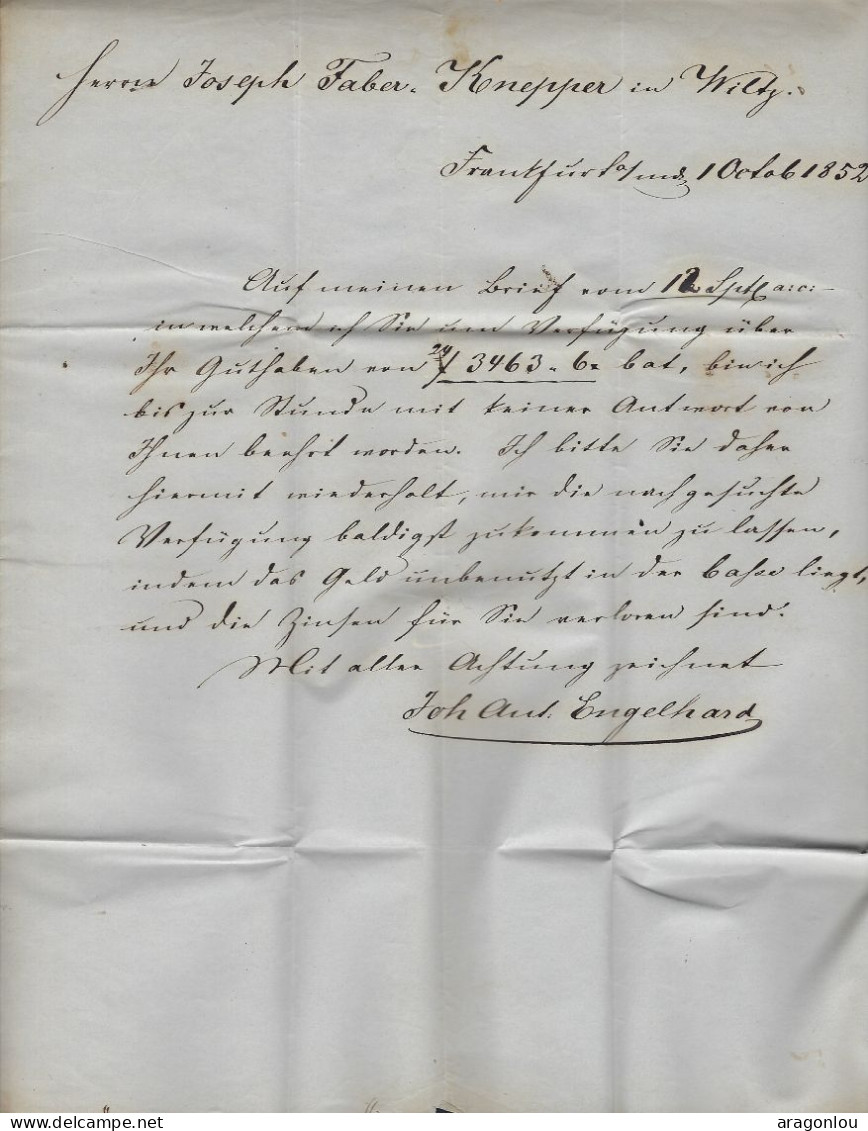 Herrn Joseph Faber-Knepper in Wiltz.
Frankfurt a/m d. 1 Octob 1852
Auf meinen Brief vom 12 Sptb a:c:
in welchem ich Sie um Verfügung über
Ihr Guthaben von f 3463 " 6 bat, bin ich
bis zur Stunde mit keiner Antwort von
Ihnen beehrt worden. Ich bitte Sie daher
hiermit wiederholt, mir die nachgesuchte
Verfügung baldigst zukommen zu lassen,
indem das Geld unbenutzt in der Casse liegt,
und die Zinsen für Sie verloren sind.
Mit aller Achtung zeichnet
Joh Ant. Engelhard
www.delcampe.net
aragonlou